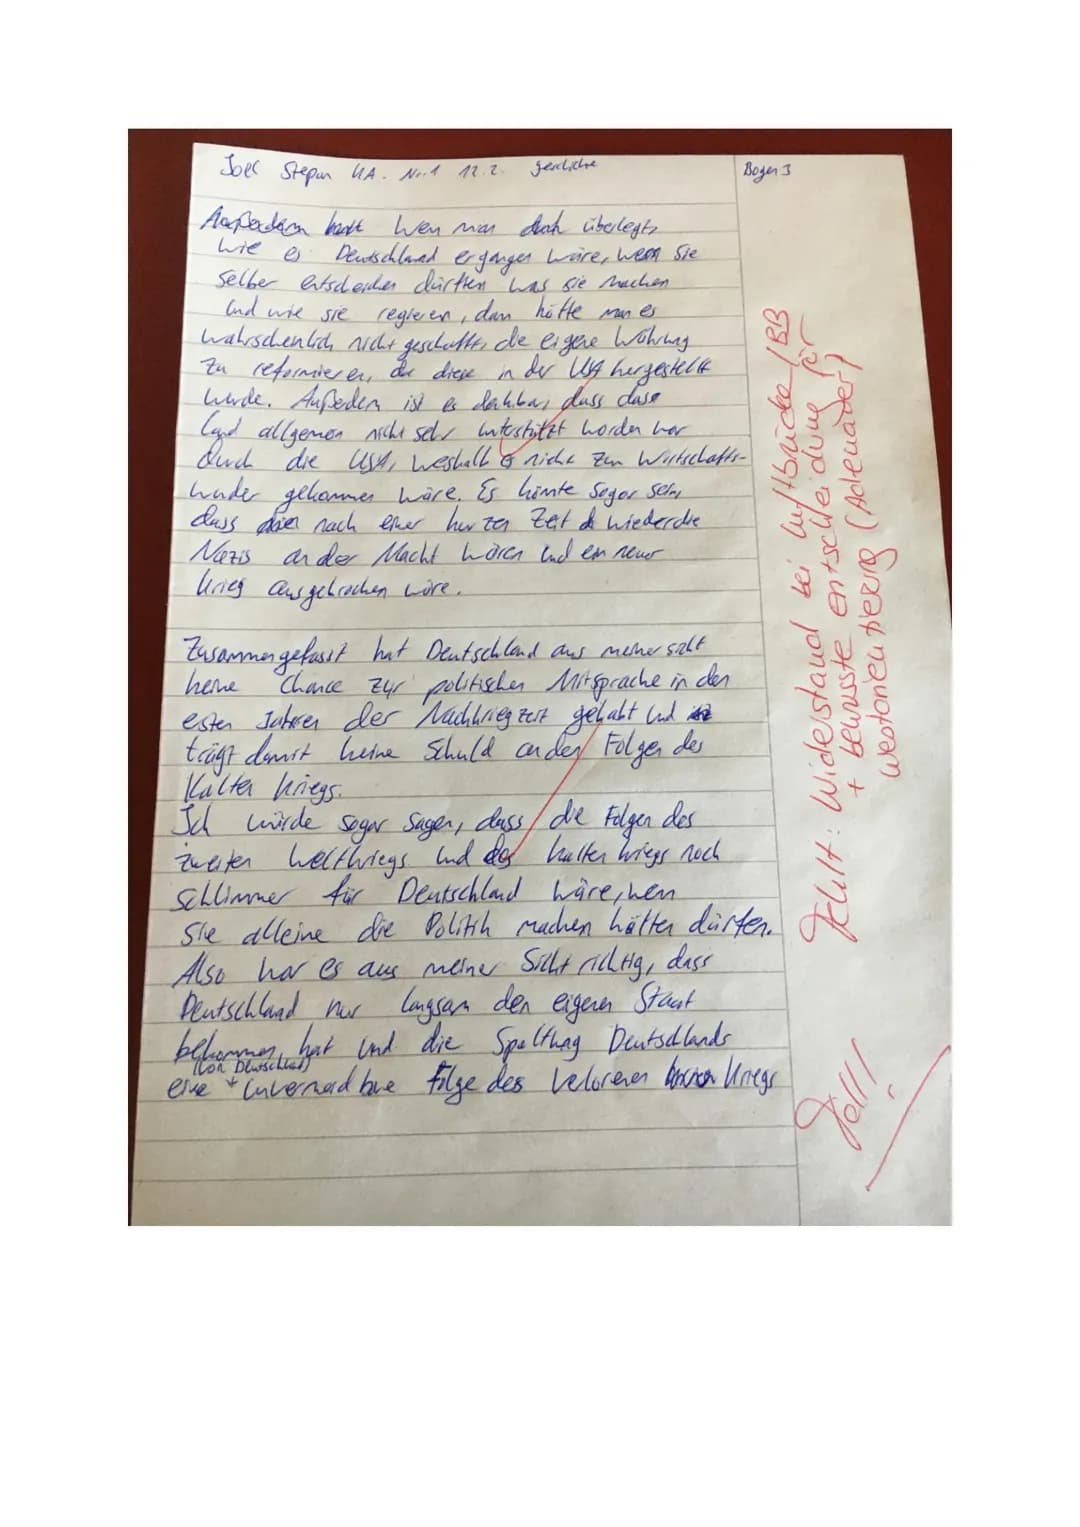 Joel Stepan KA. Nr.1 12.2. Geschichte
Bogen 3
Außerdem wen man doch überlegt,
wie es Deutschland ergangen wäre, wenn sie
selber entscheiden dürften was sie machen
und wie sie regieren, dan hätte man es
wahrschenlich nicht geschafft, die eigene Währung
zu reformieren, da diese in der USA hergestellt
wurde. Außedem ist es denkbar, dass dass
Land allgemen nicht sehr unterstützt worden wär
durch die USA, weshalb es nicht zum Wirtschafts-
wunder gekommen wäre. Es könnte sogar sein,
dass nach einer kurzen Zeit wieder die
Nazis an der Macht wären und ein neuer
Krieg ausgebrochen wäre.
Zusammengefasst hat Deutschland aus meiner sicht
keine Chance zur politischen Mitsprache in den
esten Jahren der Nachkriegzeit gehabt und
trägt damit keine Schuld an den Folgen des
Kalten Kriegs.
Ich würde sogar sagen, dass die Folgen des
zweiten Weltkriegs und des kalten kriegs noch
schlimmer für Deutschland wäre, wen
sie alleine die Politik machen hätten dürfen.
Also war es aus meiner Sicht richtig, dass
Deutschland nur langsam den eigenen Staat
bekommen hat und die Spalthng Deutschlands
(von Deutschland)
eine unvermeidbare Folge des veloreren Kriegs
Fehlt: Widerstand bei Luftbrücke / BB
+ bewusste Entscheidung für
Westorientierung (Adenauer)
Toll!